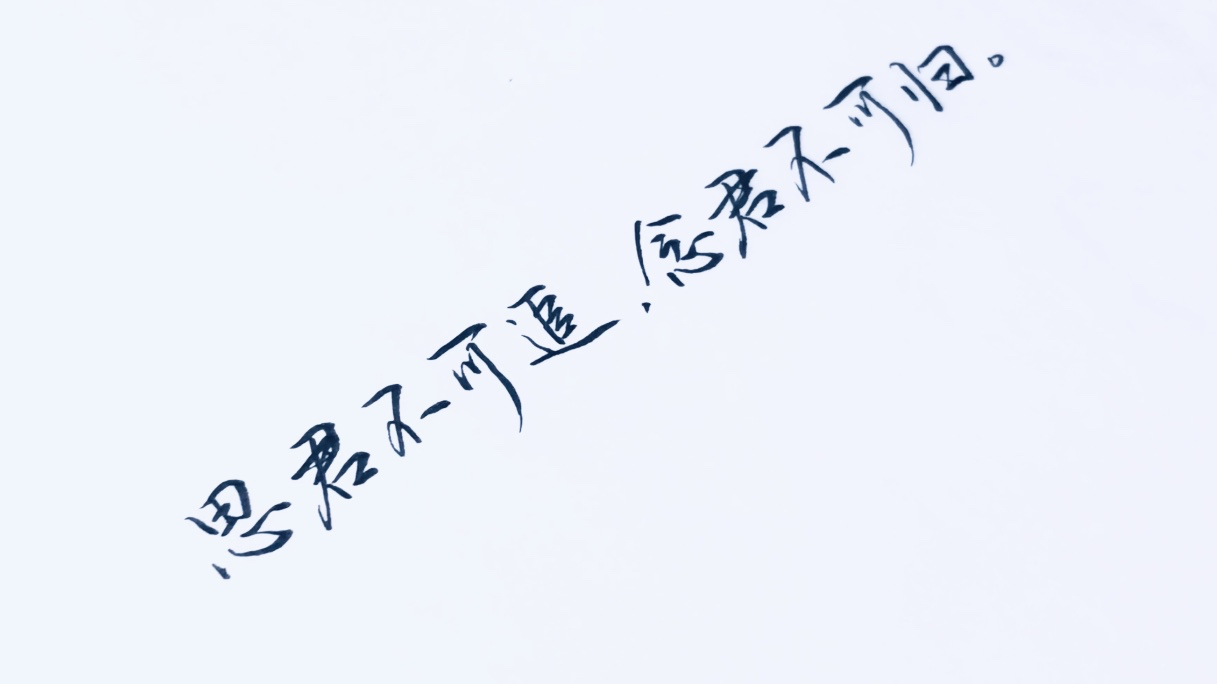 思君不可追,愿君不可归。